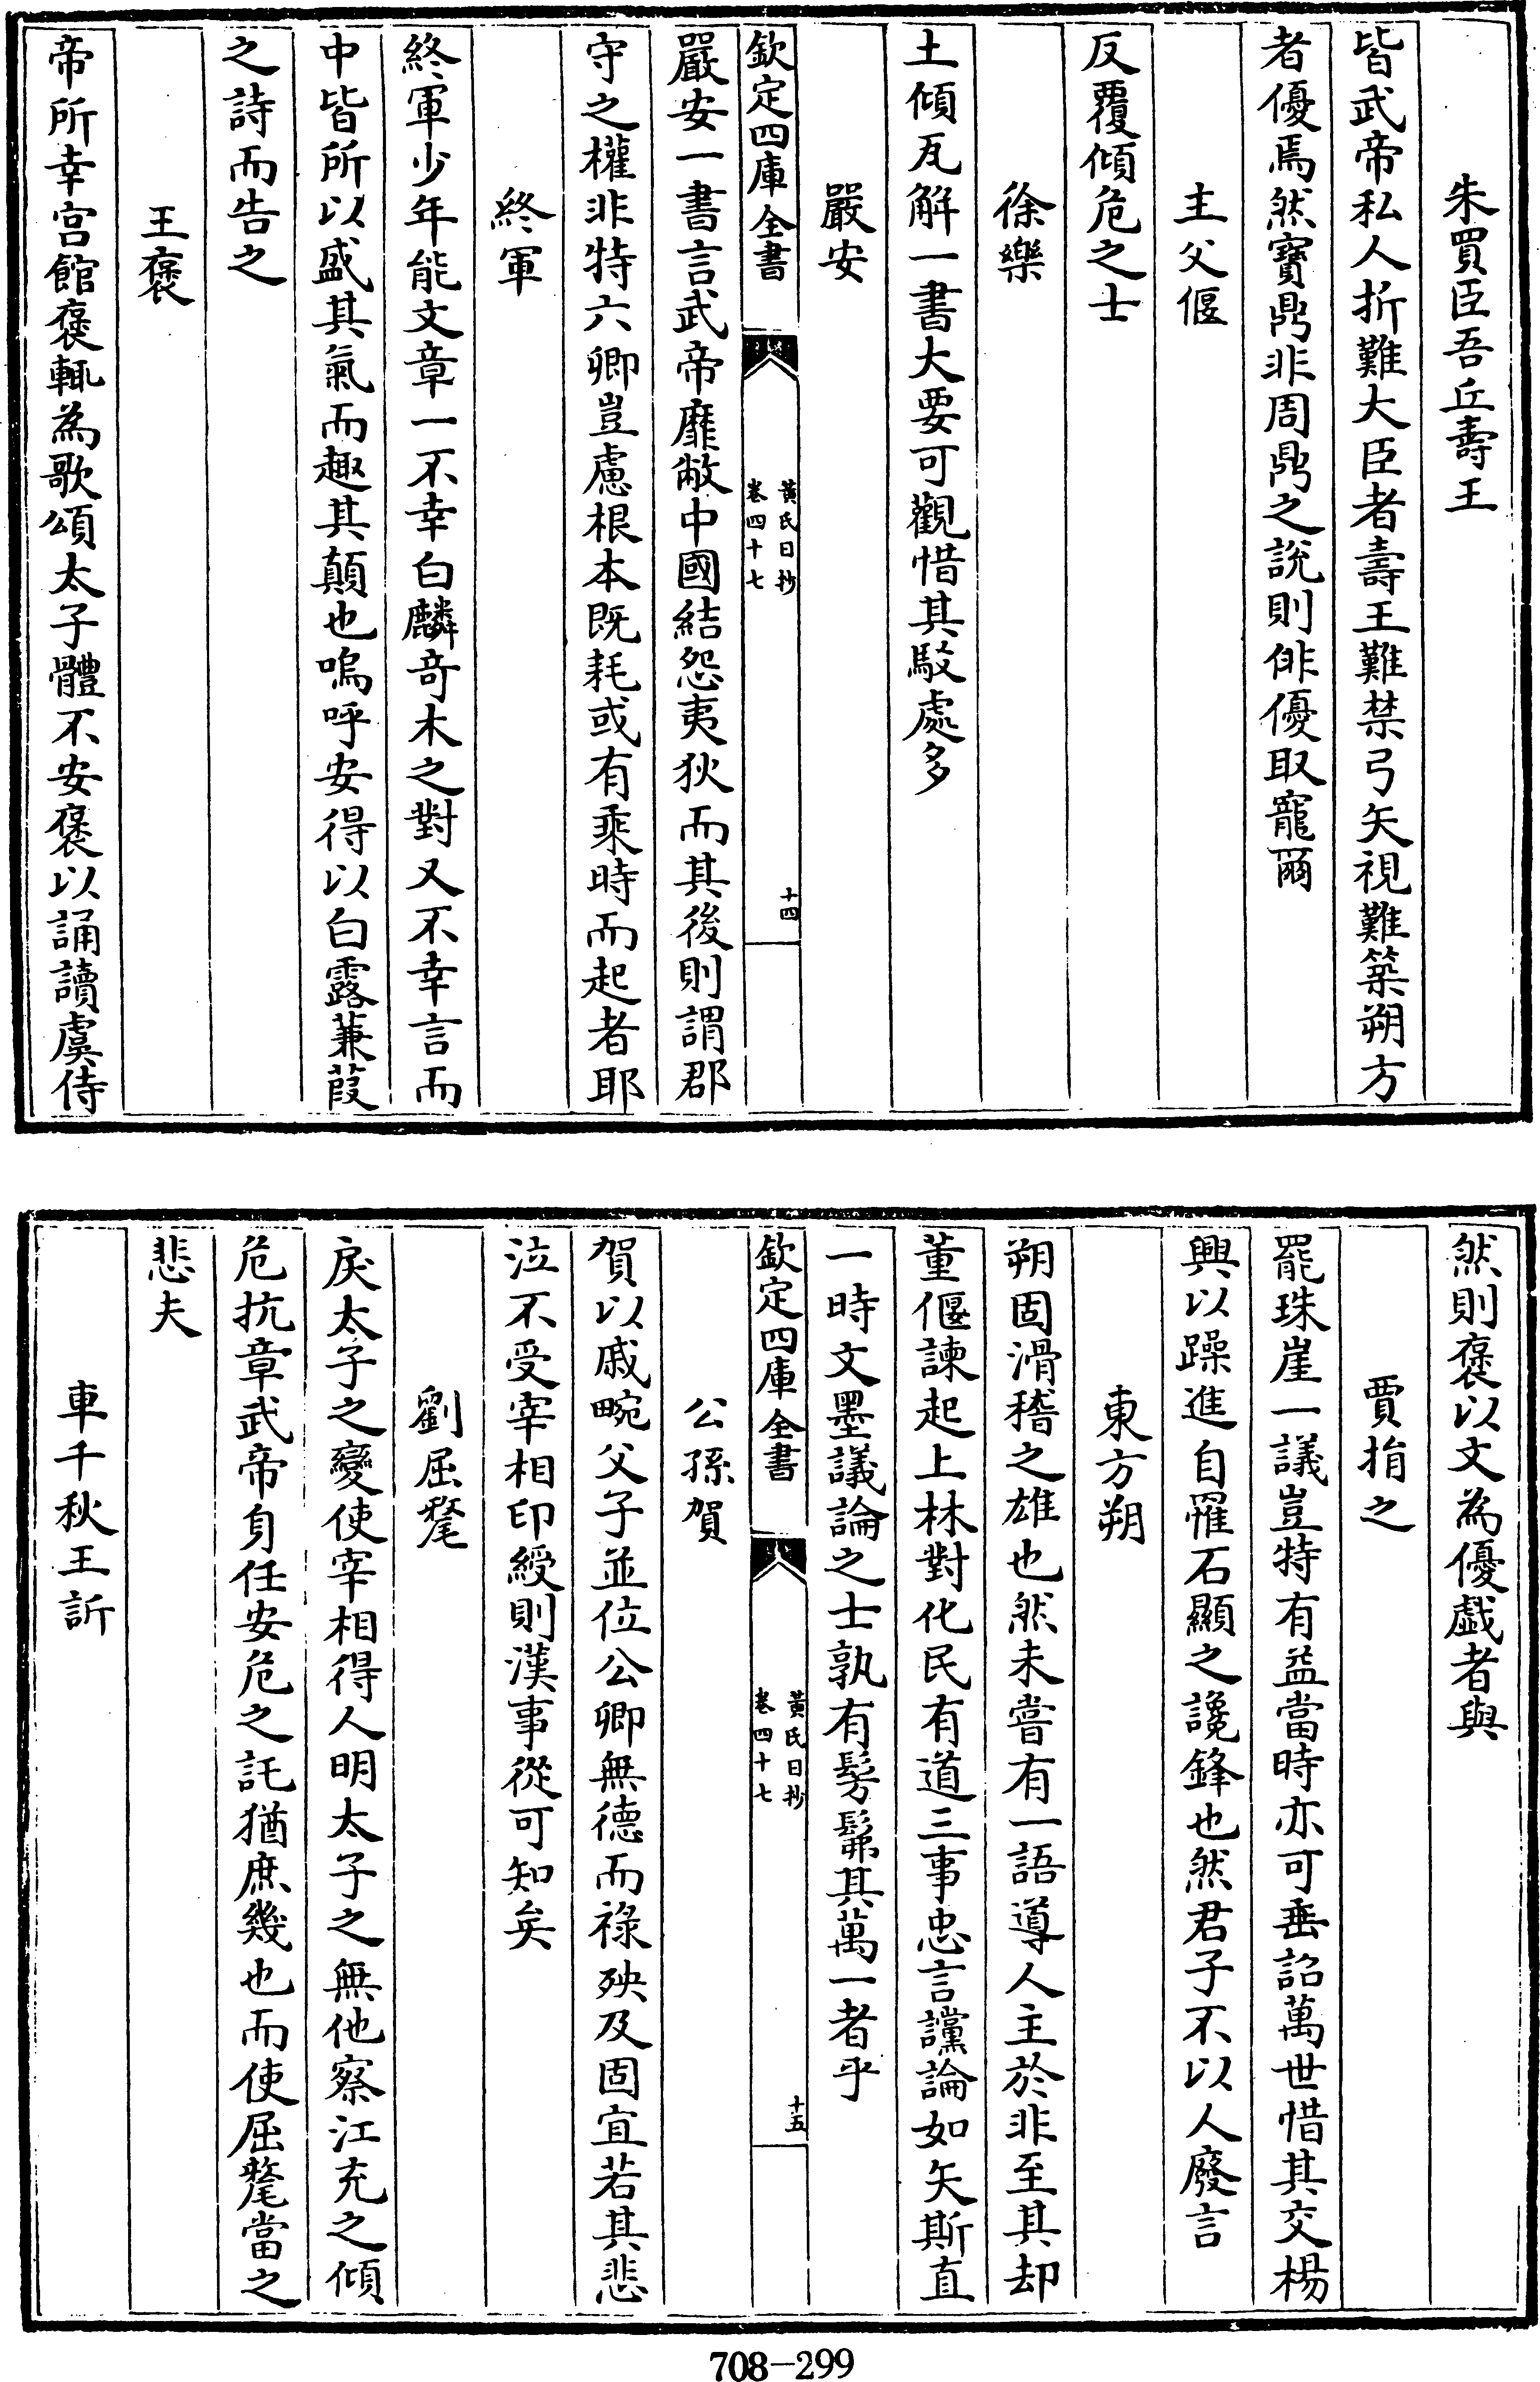 朱買臣吾丘壽王
皆武帝私人折難大臣者壽王難禁弓矢視難築朔方
者優焉然寳鼎非周鼎之說則俳優取寵爾
主父偃
反覆傾危之士
徐樂
土傾瓦解一書大要可觀惜其駁處多
嚴安
欽定四庫全書
黃氏日抄
卷四十七
十四
嚴安一書言武帝靡敝中國結怨夷狄而其後則謂郡
守之權非特六卿豈慮根本既耗或有乘時而起者耶
終軍
終軍少年能文章一不幸白麟竒木之對又不幸言而
中皆所以盛其氣而趣其顛也嗚呼安得以白露蒹葭
之詩而告之
王褒
帝所幸宮館褒輒為歌頌太子體不安褒以誦讀虞侍
然則褒以文為優戲者與
賈捐之
罷珠崖一議豈特有益當時亦可垂詔萬世惜其交楊
興以躁進自罹石顯之讒鋒也然君子不以人廢言
東方朔
朔固滑稽之雄也然未嘗有一語導人主於非至其却
董偃諫起上林對化民有道三事忠言讜論如矢斯直
一時文墨議論之士孰有髣髴其萬一者乎
欽定四庫全書
黃氏日抄
卷四十七
十五
公孫賀
賀以戚畹父子並位公卿無德而祿殃及固宜若其悲
泣不受宰相印綬則漢事從可知矣
劉屈氂
戾太子之變使宰相得人明太子之無他察江充之傾
危抗章武帝身任安危之託猶庶幾也而使屈氂當之
悲夫
車千秋王訢
708-299